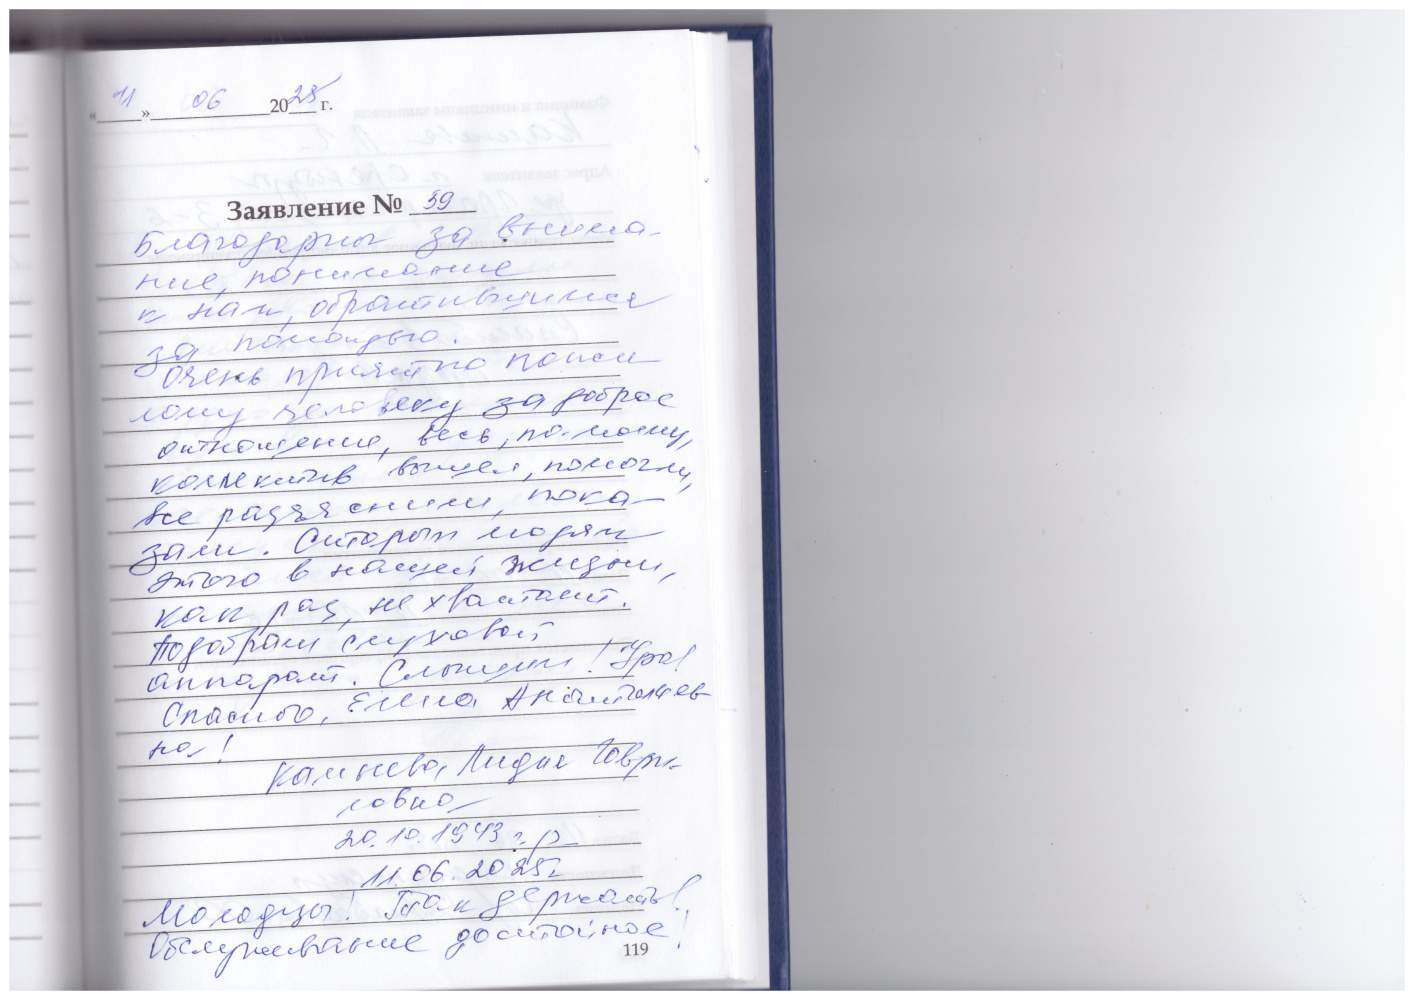 «11» 06 2025 г.
Заявление № 39
Благодарны за внима-
ние, понимание
к нам, обратившимся
за помощью.
Очень приятно пожи
лому человеку за доброе
отношение, весь, по-моему,
коллектив вышел, помогли,
все разъяснили, пока-
зали. Старым людям
этого в нашей жизни,
как раз, не хватает.
Подобрали слуховой
аппарат. Слышим! Ура!
Спасибо, Елена Анатольев-
на!
Лидия Гаври-
ловна
20.10.1943 г.р
11.06.2025г
Молодцы! Так держать!
Обслуживание достойное!
119